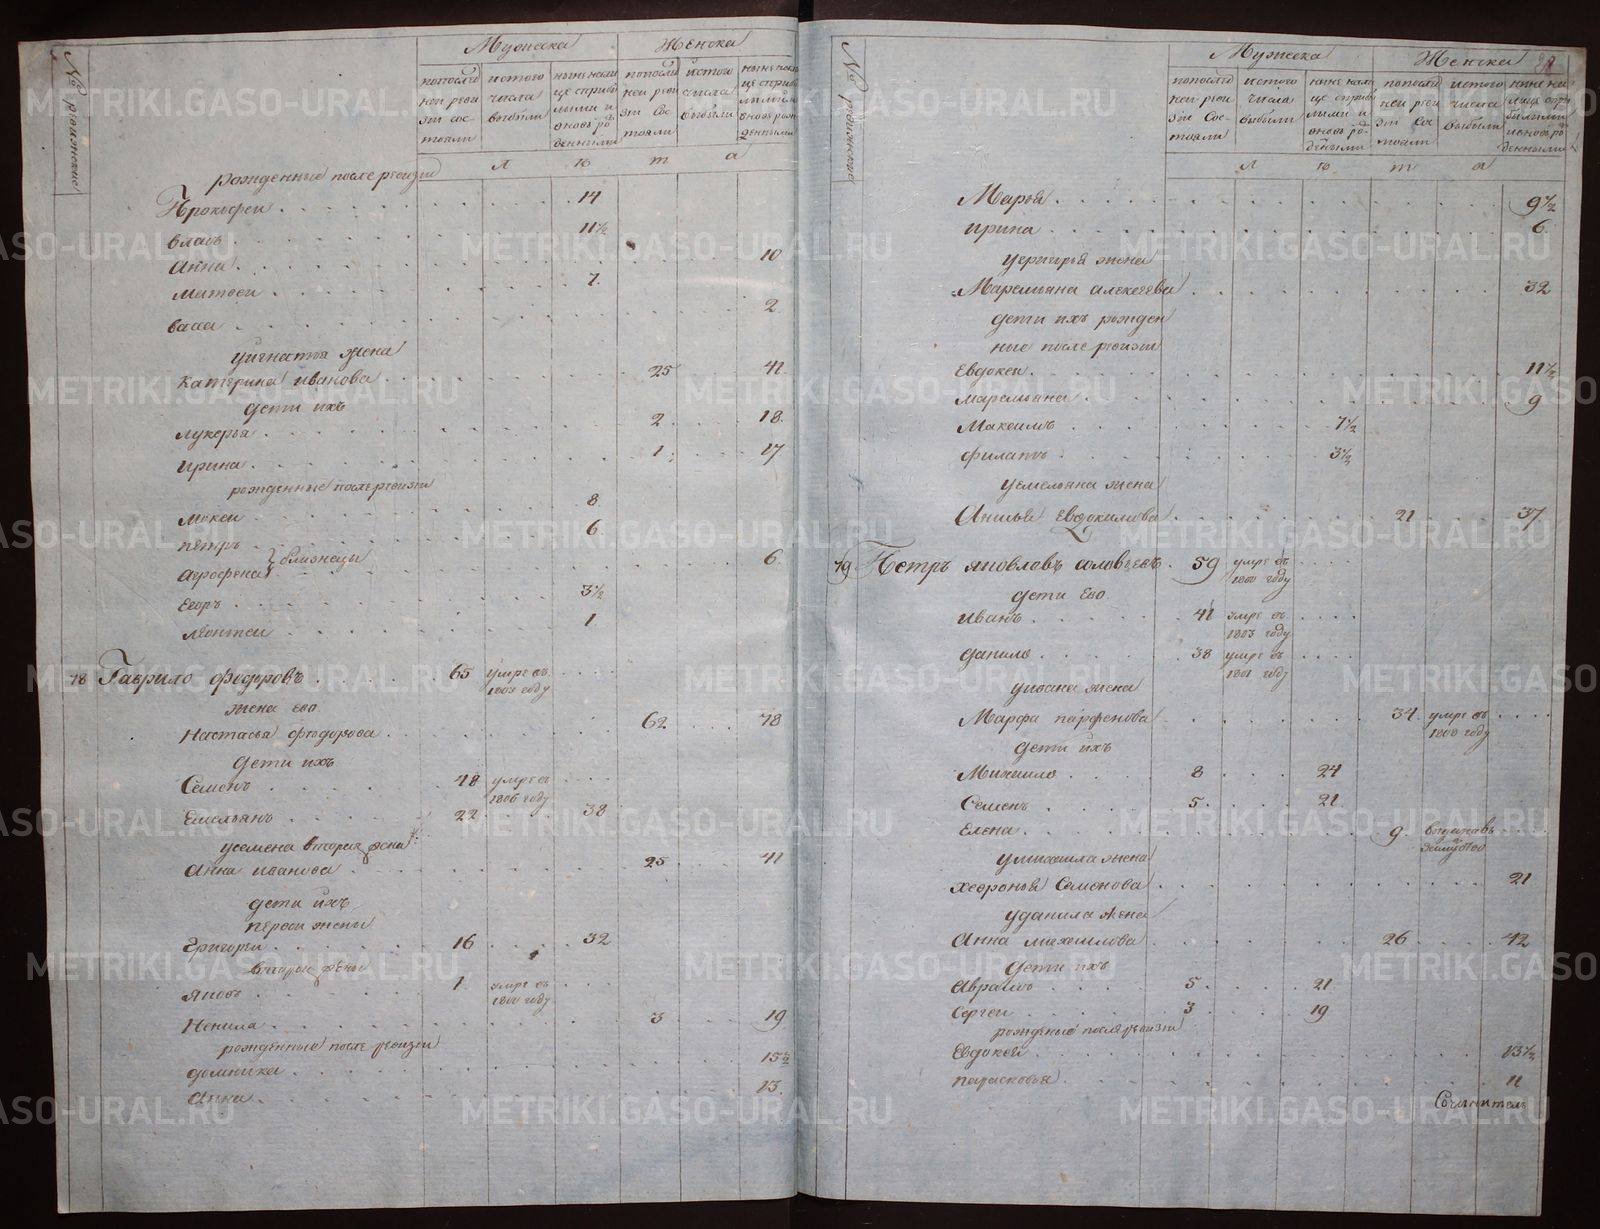 № ревижские
Мужеска
Женска
попослед
ней реви
зии сос-
тояли
истого
числа
выбыли
ныне нали
це сприб
лыми и
вновь ро
жденными
попосле
ней реви
зии сос
тояли
истого
числа
выбыли
ныне нали
це сприб
Л ѣ т а
рожденные после ревизии
Прокофеи 14
власъ 11½
Анна 10
Матвеи 7
васа 2
уигнатья жена
Катерина иванова 25 41
дети ихъ
лукерья 2 18
ирина 1 17
рожденные после ревизии
Мокеи 8
петръ 6
агрофена близнецы 6
Егоръ 3½
леонтеи 1
78 Гаврило федоровъ 65 умре въ
1803 году
жена ево
Настасья федорова 62 78
дети ихъ
Семенъ 48 умре въ
1806 году
Емельянъ 22 38
усемена вторая жена
Анна иванова 25 41
дети ихъ
первои жены
Григореи 16 32
второи жены
яковъ 1 умре въ
1800 году
Ненила 3 19
рожденные после ревизии
домника 15½
Анна 13
№ ревижские
Мужеска
Женска
попослед
ней реви
зии сос
тояли
истого
числа
выбыли
ныне нали
це сприб
лыми и
вновь ро
жденными
попосле
ней реви
зии сос
тояли
истого
числа
выбыли
Л ѣ т а
Марья 9½
ирина 6
угригорья жена
Маремьяна алексеева 32
дети ихъ рожден
ные после ревизии
Евдокеи 11½
маремьяна 9
Максимъ 7½
филатъ 3½
уемельяна жена
Анисья Евдокимова 21 37
79 Петръ яковлевъ соловьевъ 59 умре въ
1800 году
дети ево
иванъ 41 умре въ
1803 году
данило 38 умре въ
1801 году
уивана жена
Марфа парфенова 34 умре въ
1800 году
дети ихъ
Михаило 8 24
Семенъ 5 21
Елена 9
замужство
умихаила жена
хевронья Семенова 21
уданила жена
Анна михаилова 26 42
дети ихъ
Авраамъ 5 21
Сергеи 3 19
рожденые после ревизии
Евдокеи 13½
парасковья 11
METRIKI.GASO-URAL.RU